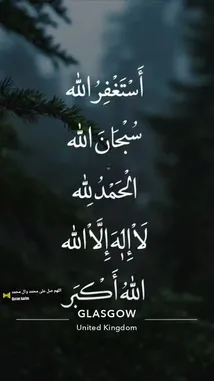 أَسْتَغْفِرُ الله
سُبْحَانَ الله
الْحَمْدُ لِلهِ
لَا إِلٰهَ إِلَّا الله
اللهُ أَكْبَر
اللهم صل على محمد وال محمد
GLASGOW
United Kingdom